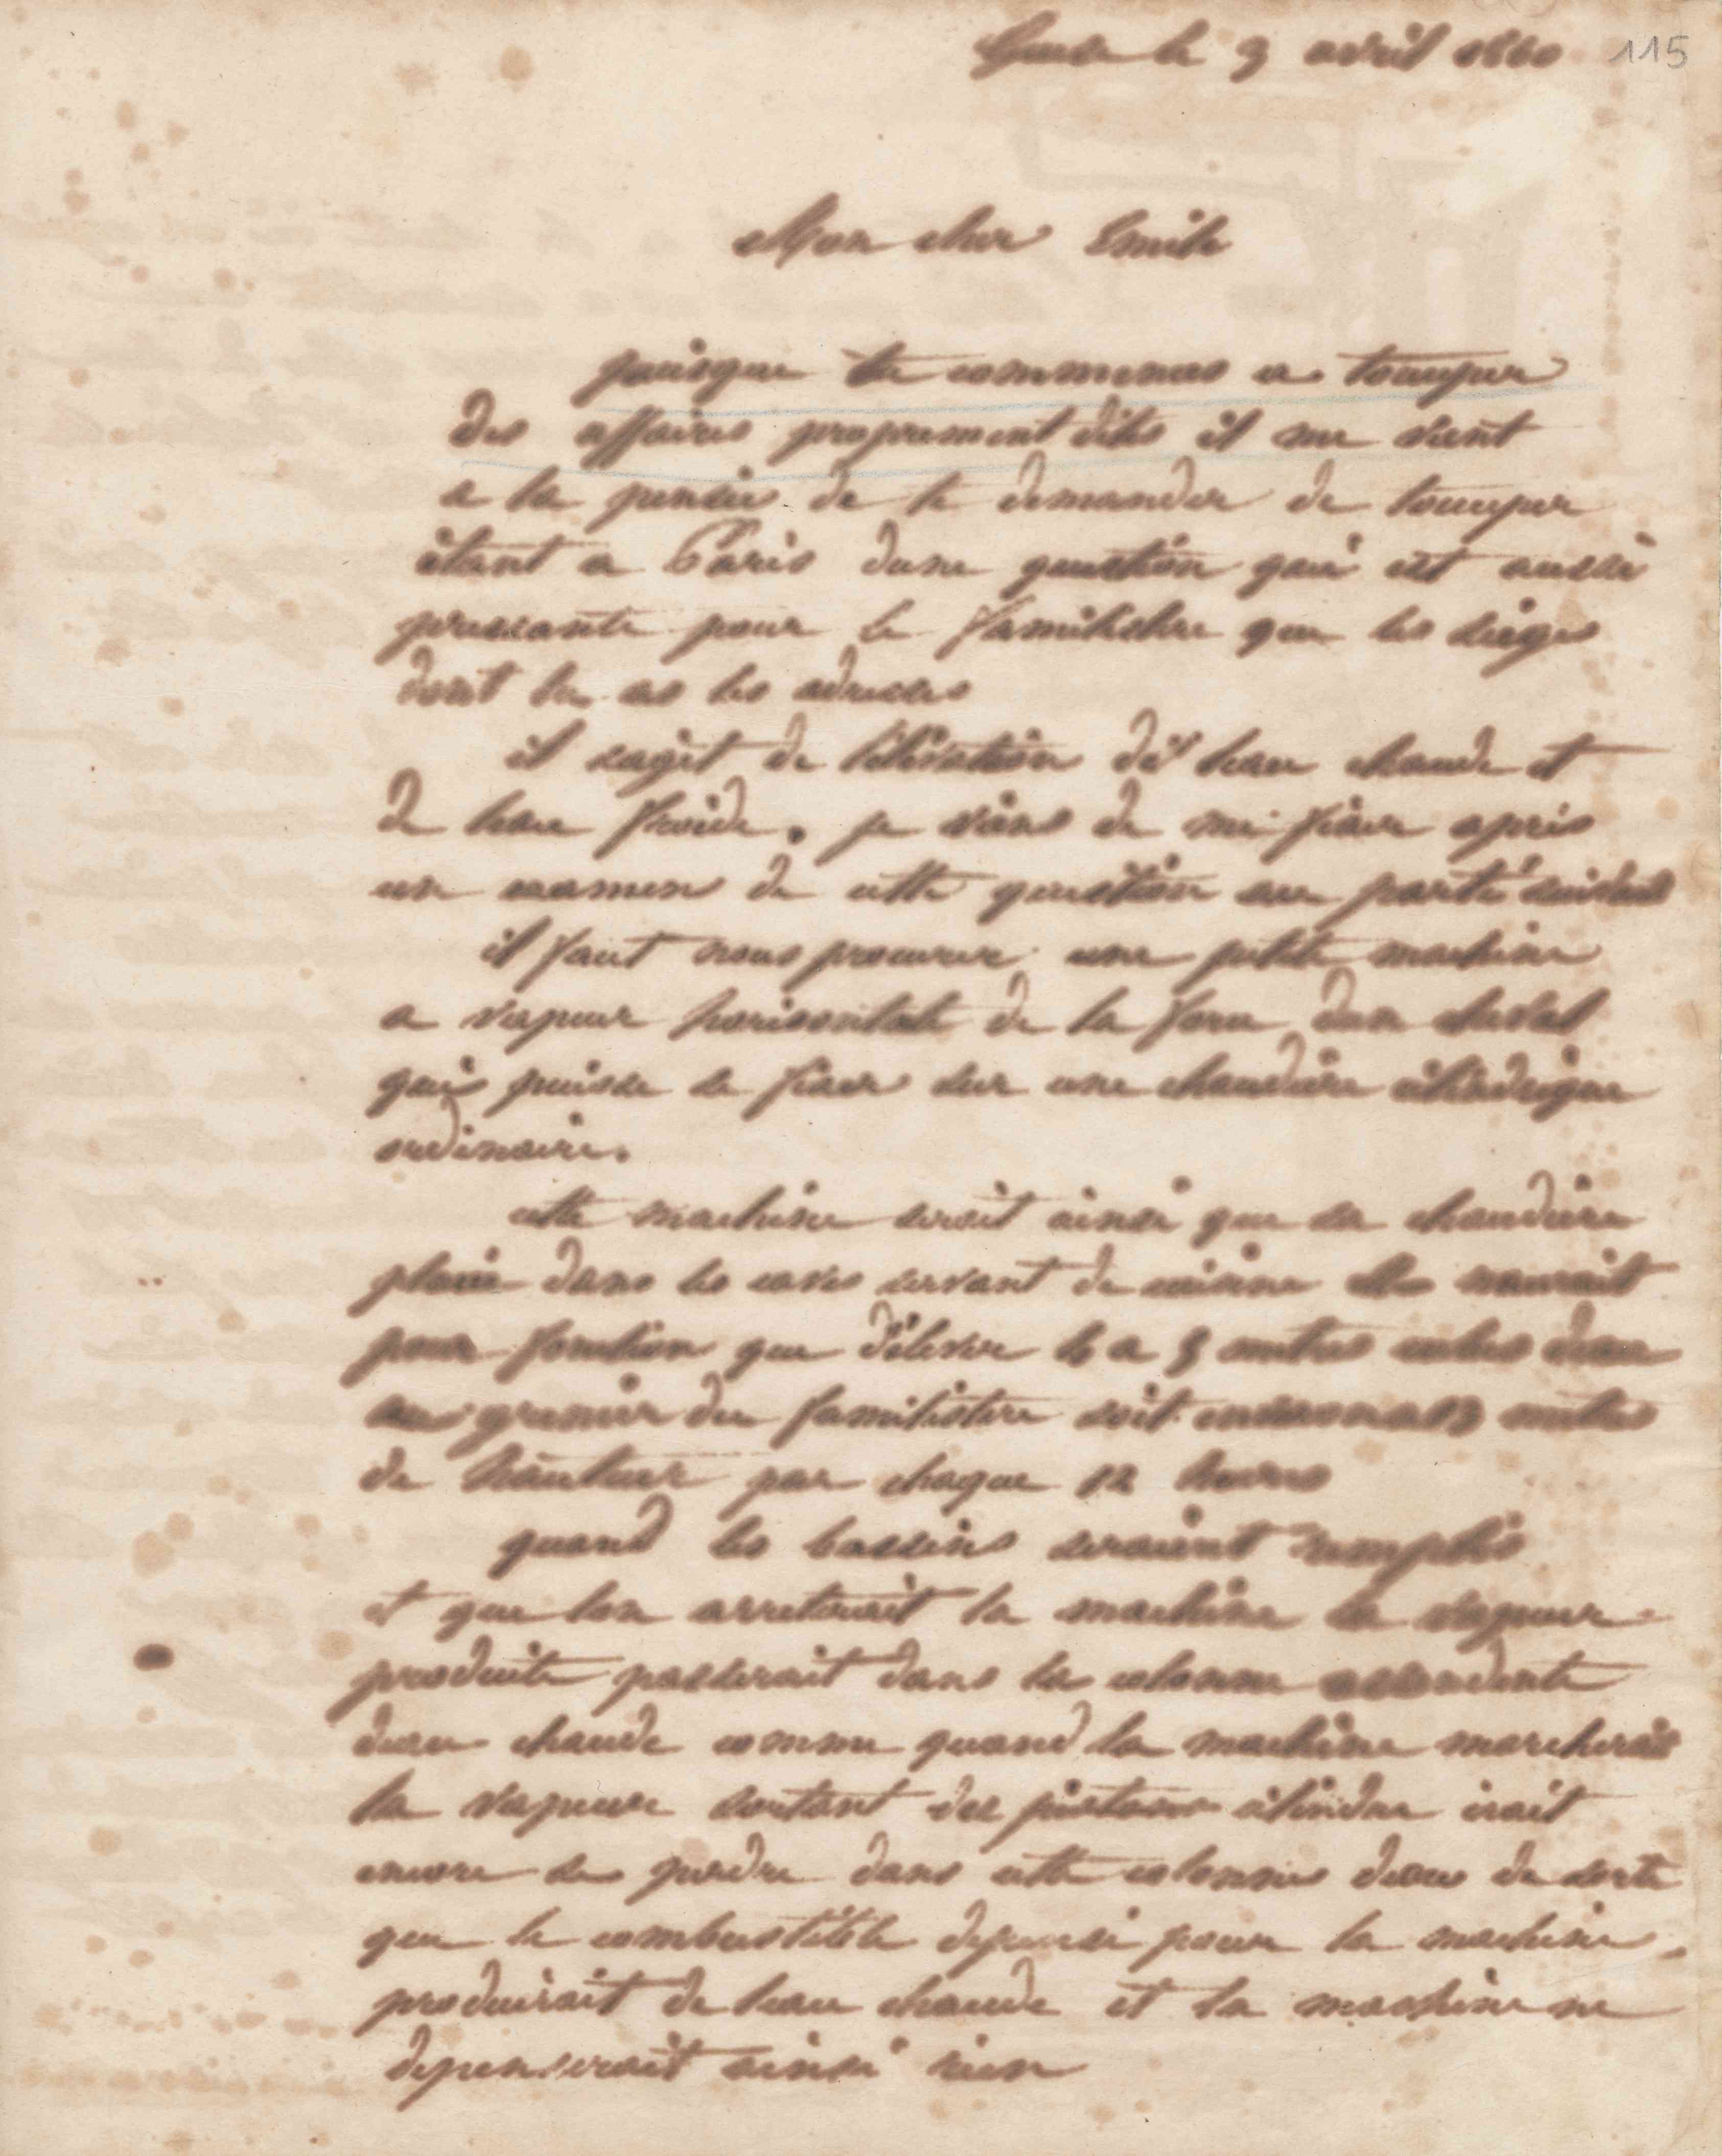 Guise le 9 avril 1860 115
Mon cher Emile
puisque tu commences a toccuper
des affaires proprement dites il me vient
a la pensée de te demander de toccuper
étant a Paris dune question qui est aussi
pressante pour le familistere que les sièges
dont tu as les adresses
il sagit de lélévation de leau chaude et
de leau froide. je viens de me fixer apres
un examen de cette question au parti suivant
il faut nous procurer une petite machine
a vapeur horisontale de la force dun cheval
qui puisse se fixer sur une chaudière cilindrique
ordinaire.
cette machine serait ainsi que sa chaudière
placée dans les caves servant de cuisine elle naurait
pour fonction que délever 6 a 8 metres cubes deau
au grenier du familistere soit environ a 13 metres
de hauteur par chaque 12 heures
quand les bassins seraient remplis
et que lon arreterait la machine la vapeur
produite passerait dans la colonne ascendente
deau chaude comme quand la machine marcherait
la vapeur sortant du cilindre irait
encore se perdre dans cette colonne deau de sorte
que le combustible depensé pour la machine
produirait de leau chaude et la machine ne
depenserait ainsi rien